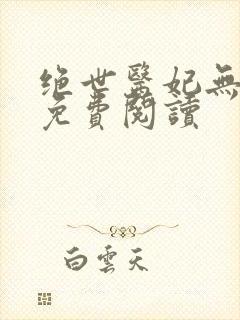 绝世醫妃無
免費閱讀
白雲天